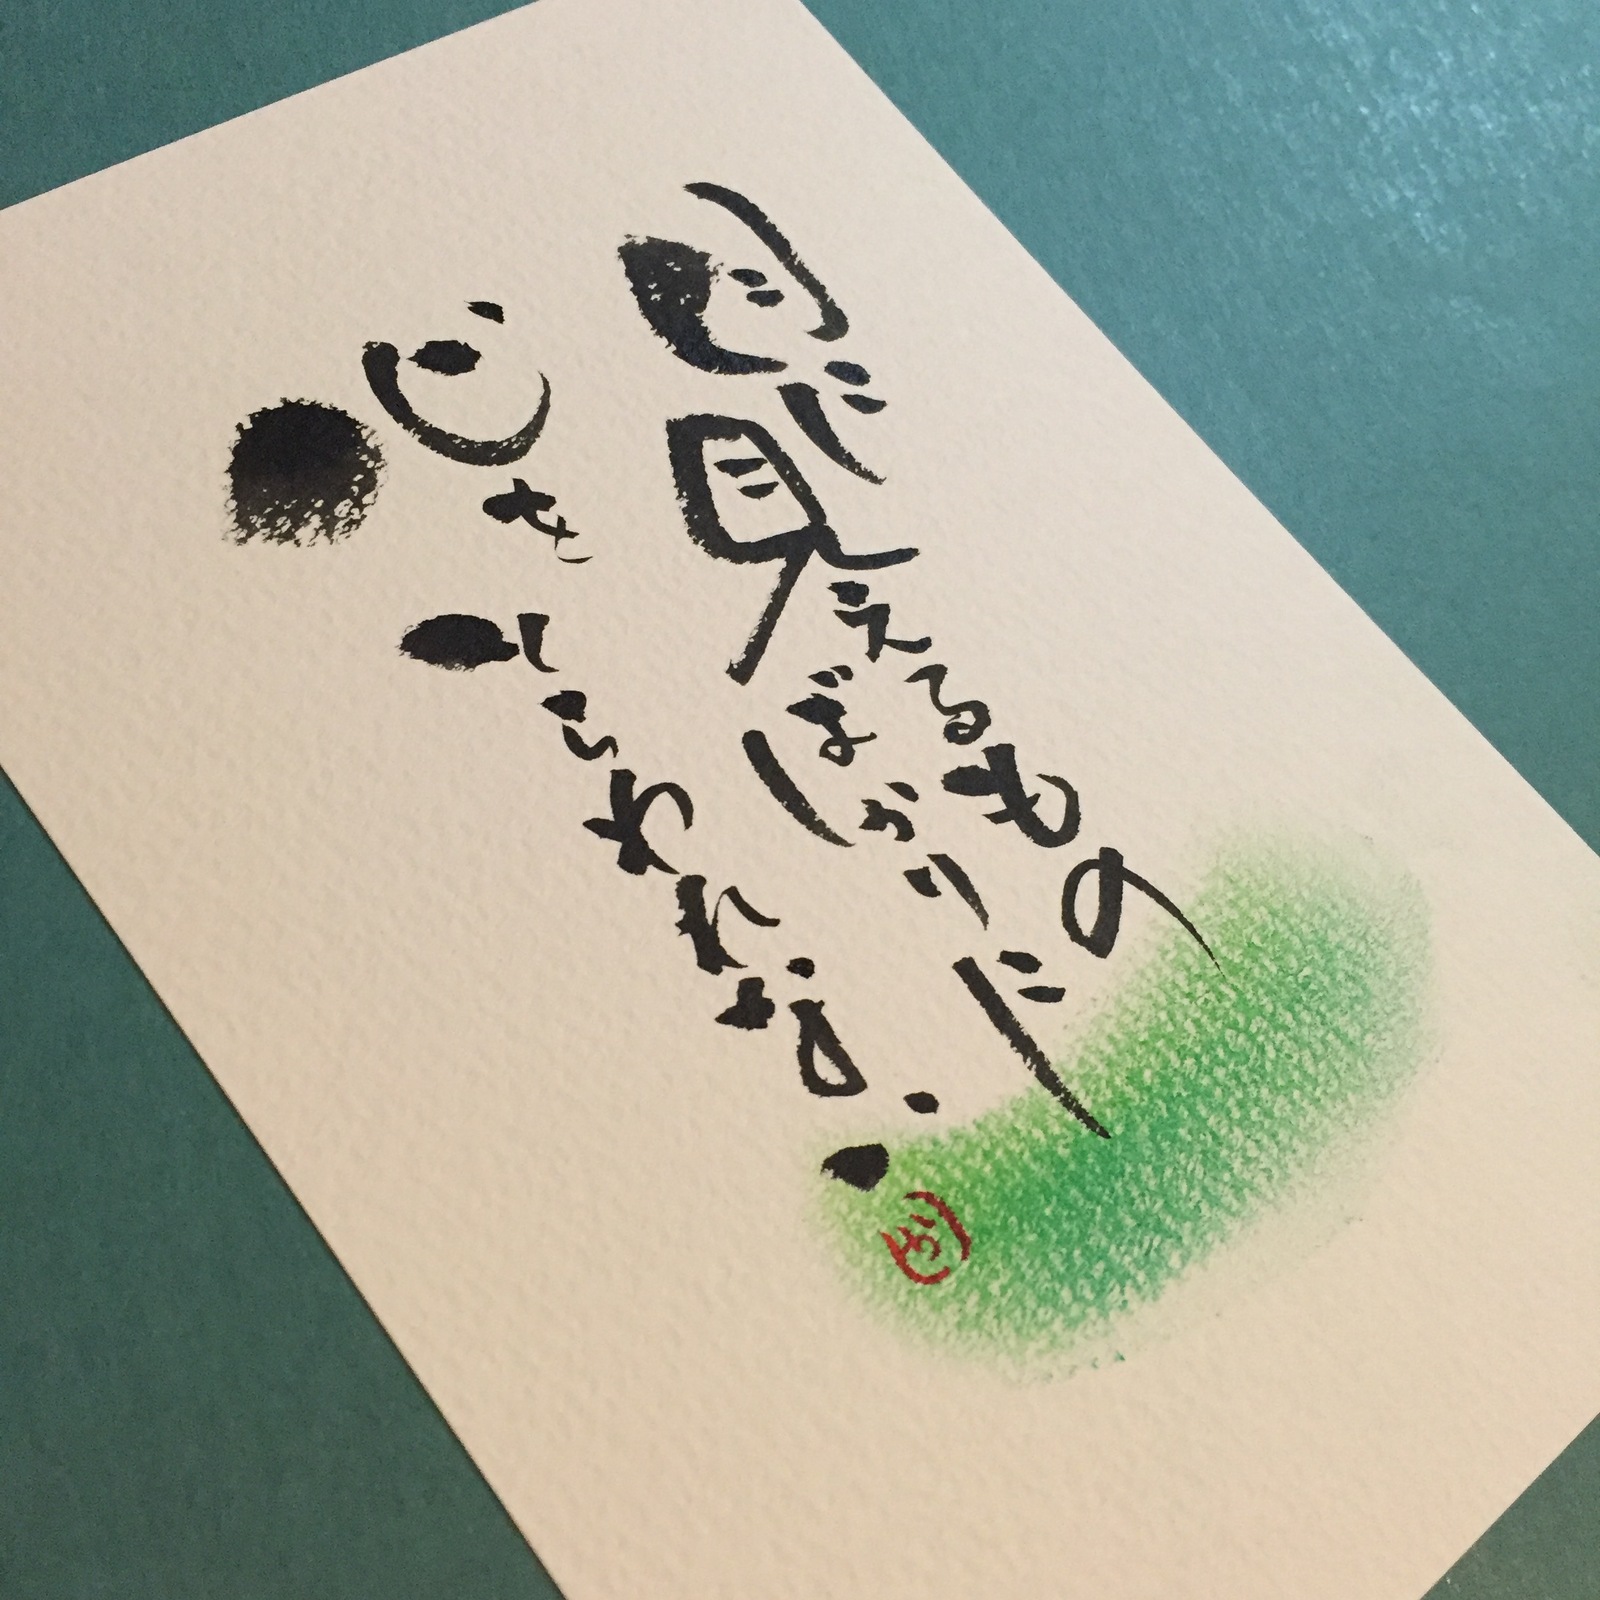 目に見えるもの
ばかりに
心を
とらわれない